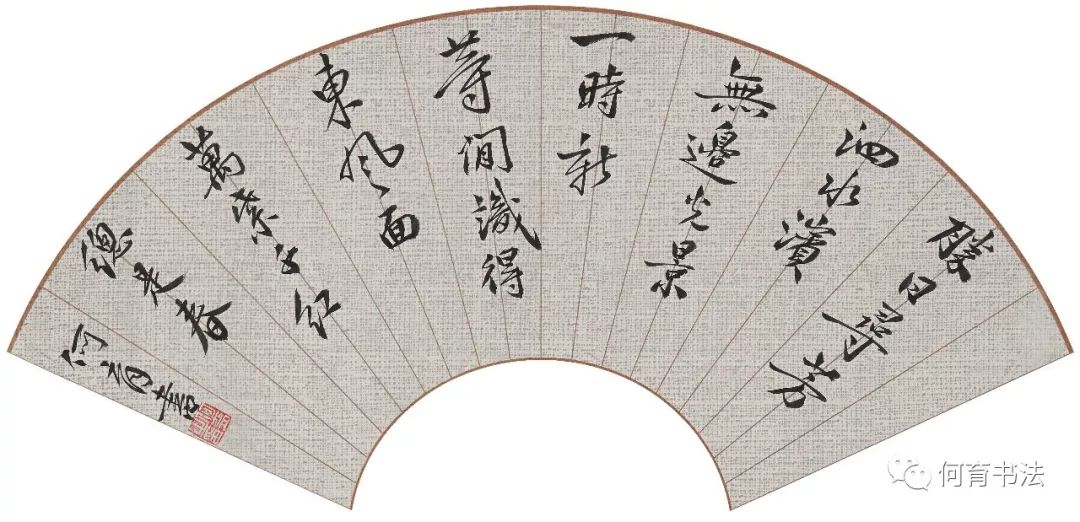 勝日尋芳
泗水濱
無邊光景
一時新
等閒識得
東風面
萬紫千紅
總是春
何育書
何育书法